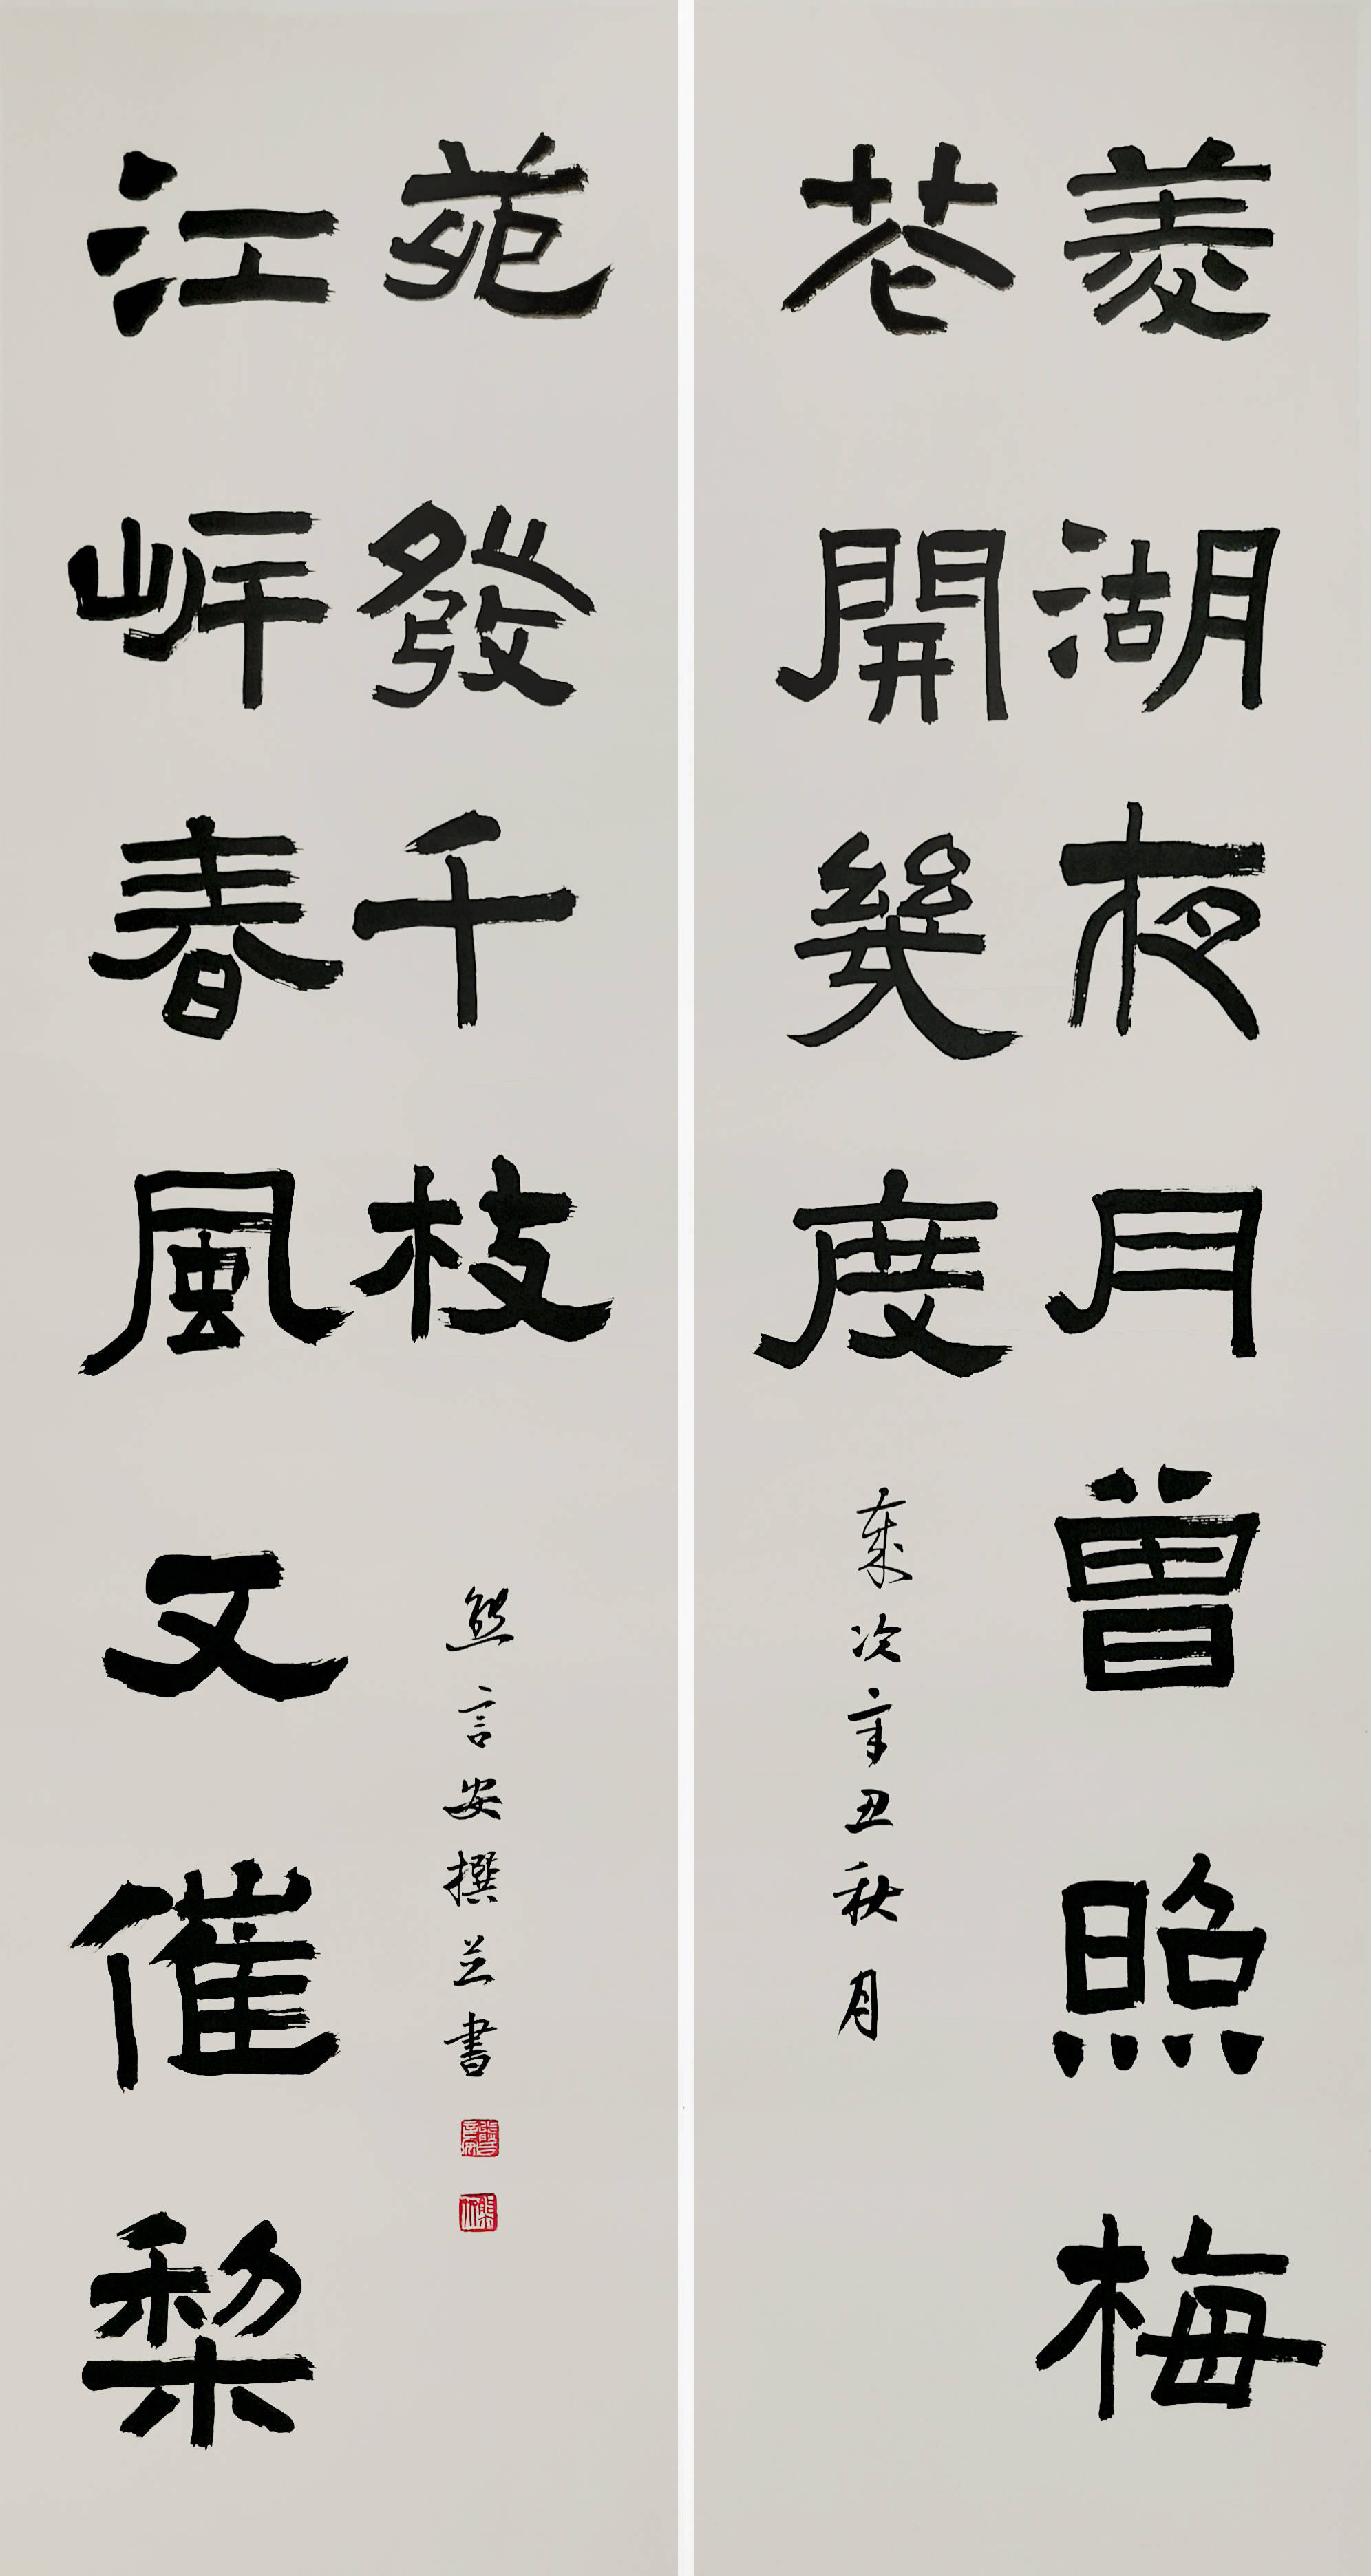 菱湖夜月曾照梅
花開幾度
歲次辛丑秋月
江岸春風又催梨
苑發千枝
熊言安撰並書